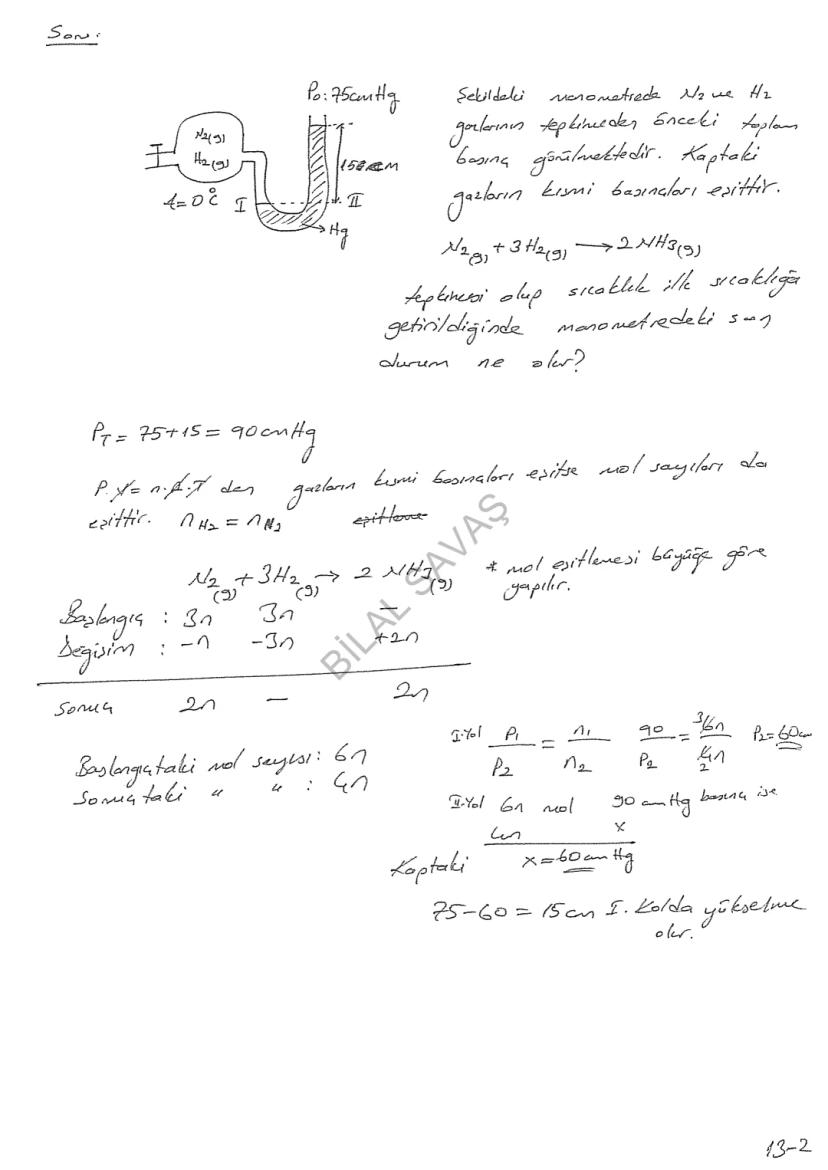 Soru:
P₀: 75cmHg
N₂(g)
H₂(g)
t=0°C
I
II
Hg
Şekildeki manometrede N₂ ve H₂
gazlarının tepkimeden önceki toplam
basınç görülmektedir. Kaptaki
gazların kısmi basınçları eşittir.
N₂(g) + 3H₂(g) → 2NH₃(g)
tepkimesi olup sıcaklık ilk sıcaklığa
getirildiğinde manometredeki son
durum ne olur?
P_T = 75+15 = 90cmHg
P.V = n.R.T den gazların kısmi basınçları eşitse mol sayıları da
eşittir. n_H₂ = n_N₂
N₂(g) + 3H₂(g) → 2 NH₃(g)
* mol eşitlemesi büyüğe göre
yapılır.
Başlangıç : 3n 3n –
Değişim : –n –3n +2n
Sonuç 2n – 2n
Başlangıçtaki mol sayısı: 6n
Sonuçtaki " " : 4n
I.Yol P₁/P₂ = n₁/n₂ 90/P₂ = 6n/4n 3 2 P₂=60cm
II.Yol 6n mol 90 cmHg basınç ise
4n x
x=60cmHg
Kaptaki
75–60 = 15cm I. Kolda yükselme
olur.
BİLAL SAVAŞ
13-2